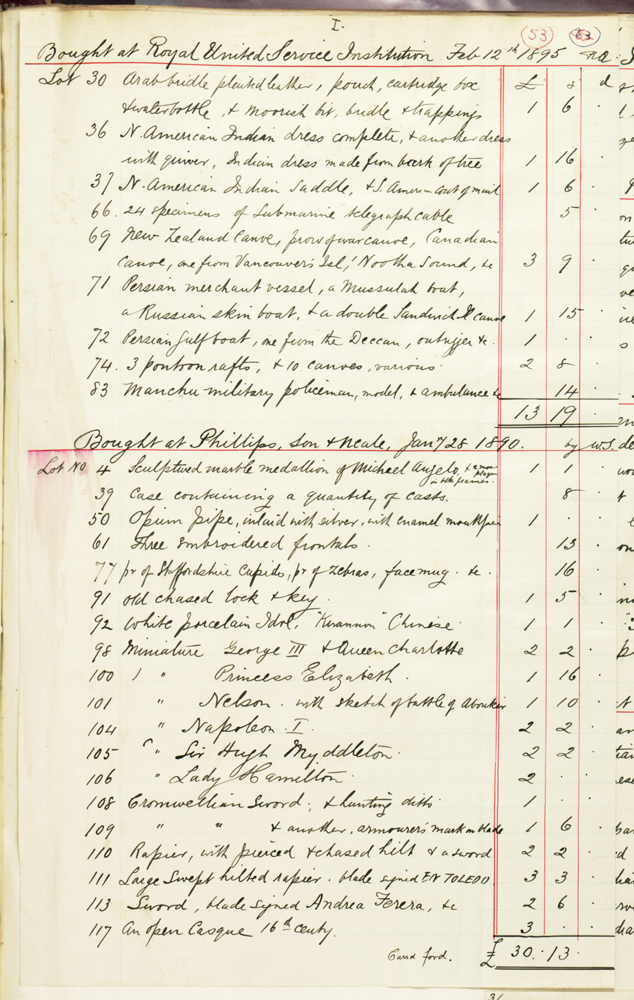 I.
53 63
Bought at Royal United Service Institution Feb 12th 1895
£ s d
Lot 30 Arab bridle pleated leather, pouch, cartridge box
& waterbottle, & moorish bit, bridle & trappings 1 6 ·
36 N. American Indian dress complete, & another dress
with quiver, Indian dress made from bark of tree 1 16 ·
37 N. American Indian Saddle, & S. American coat of mail 1 6 ·
66. 24 specimens of submarine telegraph cable 5 ·
69 New Zealand Canoe, prow of war canoe, Canadian
Canoe, one from Vancouver's Isl, Nootka Sound, &c 3 9 ·
71 Persian merchant vessel, a Mussulah boat,
a Russian skin boat, & a double Sandwich I. canoe 1 15 ·
72 Persian Gulf boat, one from the Deccan, outrigger &c. 1 · ·
74. 3 pontoon rafts, & 10 canoes, various. 2 8 ·
83 Manchu military policeman, model, & ambulance &c 14 ·
13 19 ·
Bought at Phillips, Son & Neale, Jany 28 1890. by W.S.
Lot No 4 Sculptured marble medallion of Michael Angelo, 1 1 ·
in frames.
39 Case containing a quantity of casts. 8 ·
50 Opium pipe, inlaid with silver, with enamel mouthpiece 1 · ·
61 Three Embroidered frontals. 13 ·
77 pr of Staffordshire Cupids, pr of Zebras, face mug. &c. 16 ·
91 old chased lock & key. 1 5 ·
92 White porcelain Idol, "Kwannon" Chinese. 1 1 ·
98 Miniature George III & Queen Charlotte 2 2 ·
100 1 " Princess Elizabeth. 1 16 ·
101 " Nelson. with sketch of battle of Aboukir 1 10 ·
104 " Napoleon I. 2 2 ·
105 " Sir Hugh Myddleton. 2 2 ·
106 " Lady Hamilton. 2 · ·
108 Cromwellian Sword, & hunting ditto 1 · ·
109 " " & another, armourer's mark on blade 1 6 ·
110 Rapier, with pierced & chased hilt & a sword 2 2 ·
111 Large Swept hilted rapier. blade signed EN TOLEDO. 3 3 ·
113 Sword, blade signed Andrea Ferera, &c 2 6 ·
117 An open Casque 16th centy. 3 · ·
Carrd ford. £ 30. 13 ·